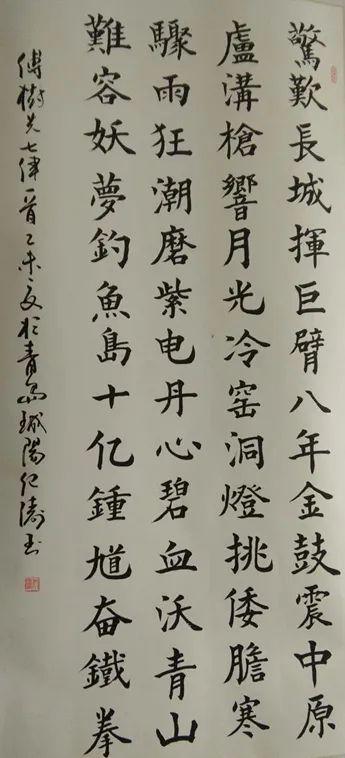 驚歎長城揮巨臂八年金鼓震中原
盧溝槍響月光冷窑洞燈挑倭膽寒
驟雨狂潮磨紫电丹心碧血沃青山
難容妖夢釣魚島十亿鍾馗奋鐵拳
傅樹先七律一首乙未之夏於青島城陽纪涛书